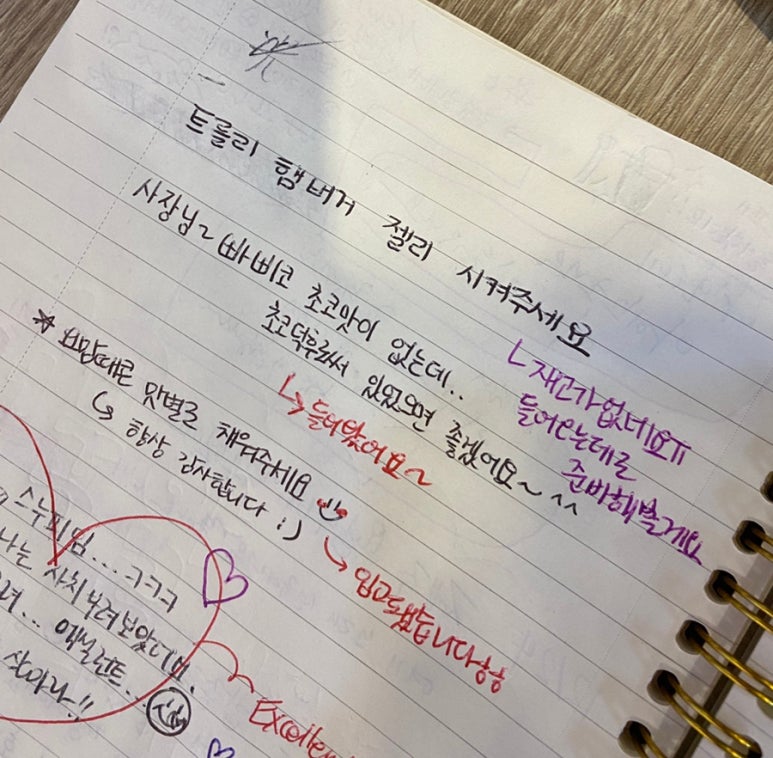 트롤리 햄버거 젤리 시켜주세요
ㄴ 재고가없데요ㅠ
들어오는데로
준비해볼게요
사장님~ 빠삐코 초코맛이 없는데..
초코덕후로써 있었으면 좋겠어요~ ^^
↳ 들어왔어요~
* 요맘때로 맛별로 채워주세요
↳ 항상 감사합니다 :)
↳ 입고됐습니다ㅎㅎ
스누피임....ㅋㅋㅋ
나는 사치부려보았다.
에쎌런트..
살아라!!
Excellen